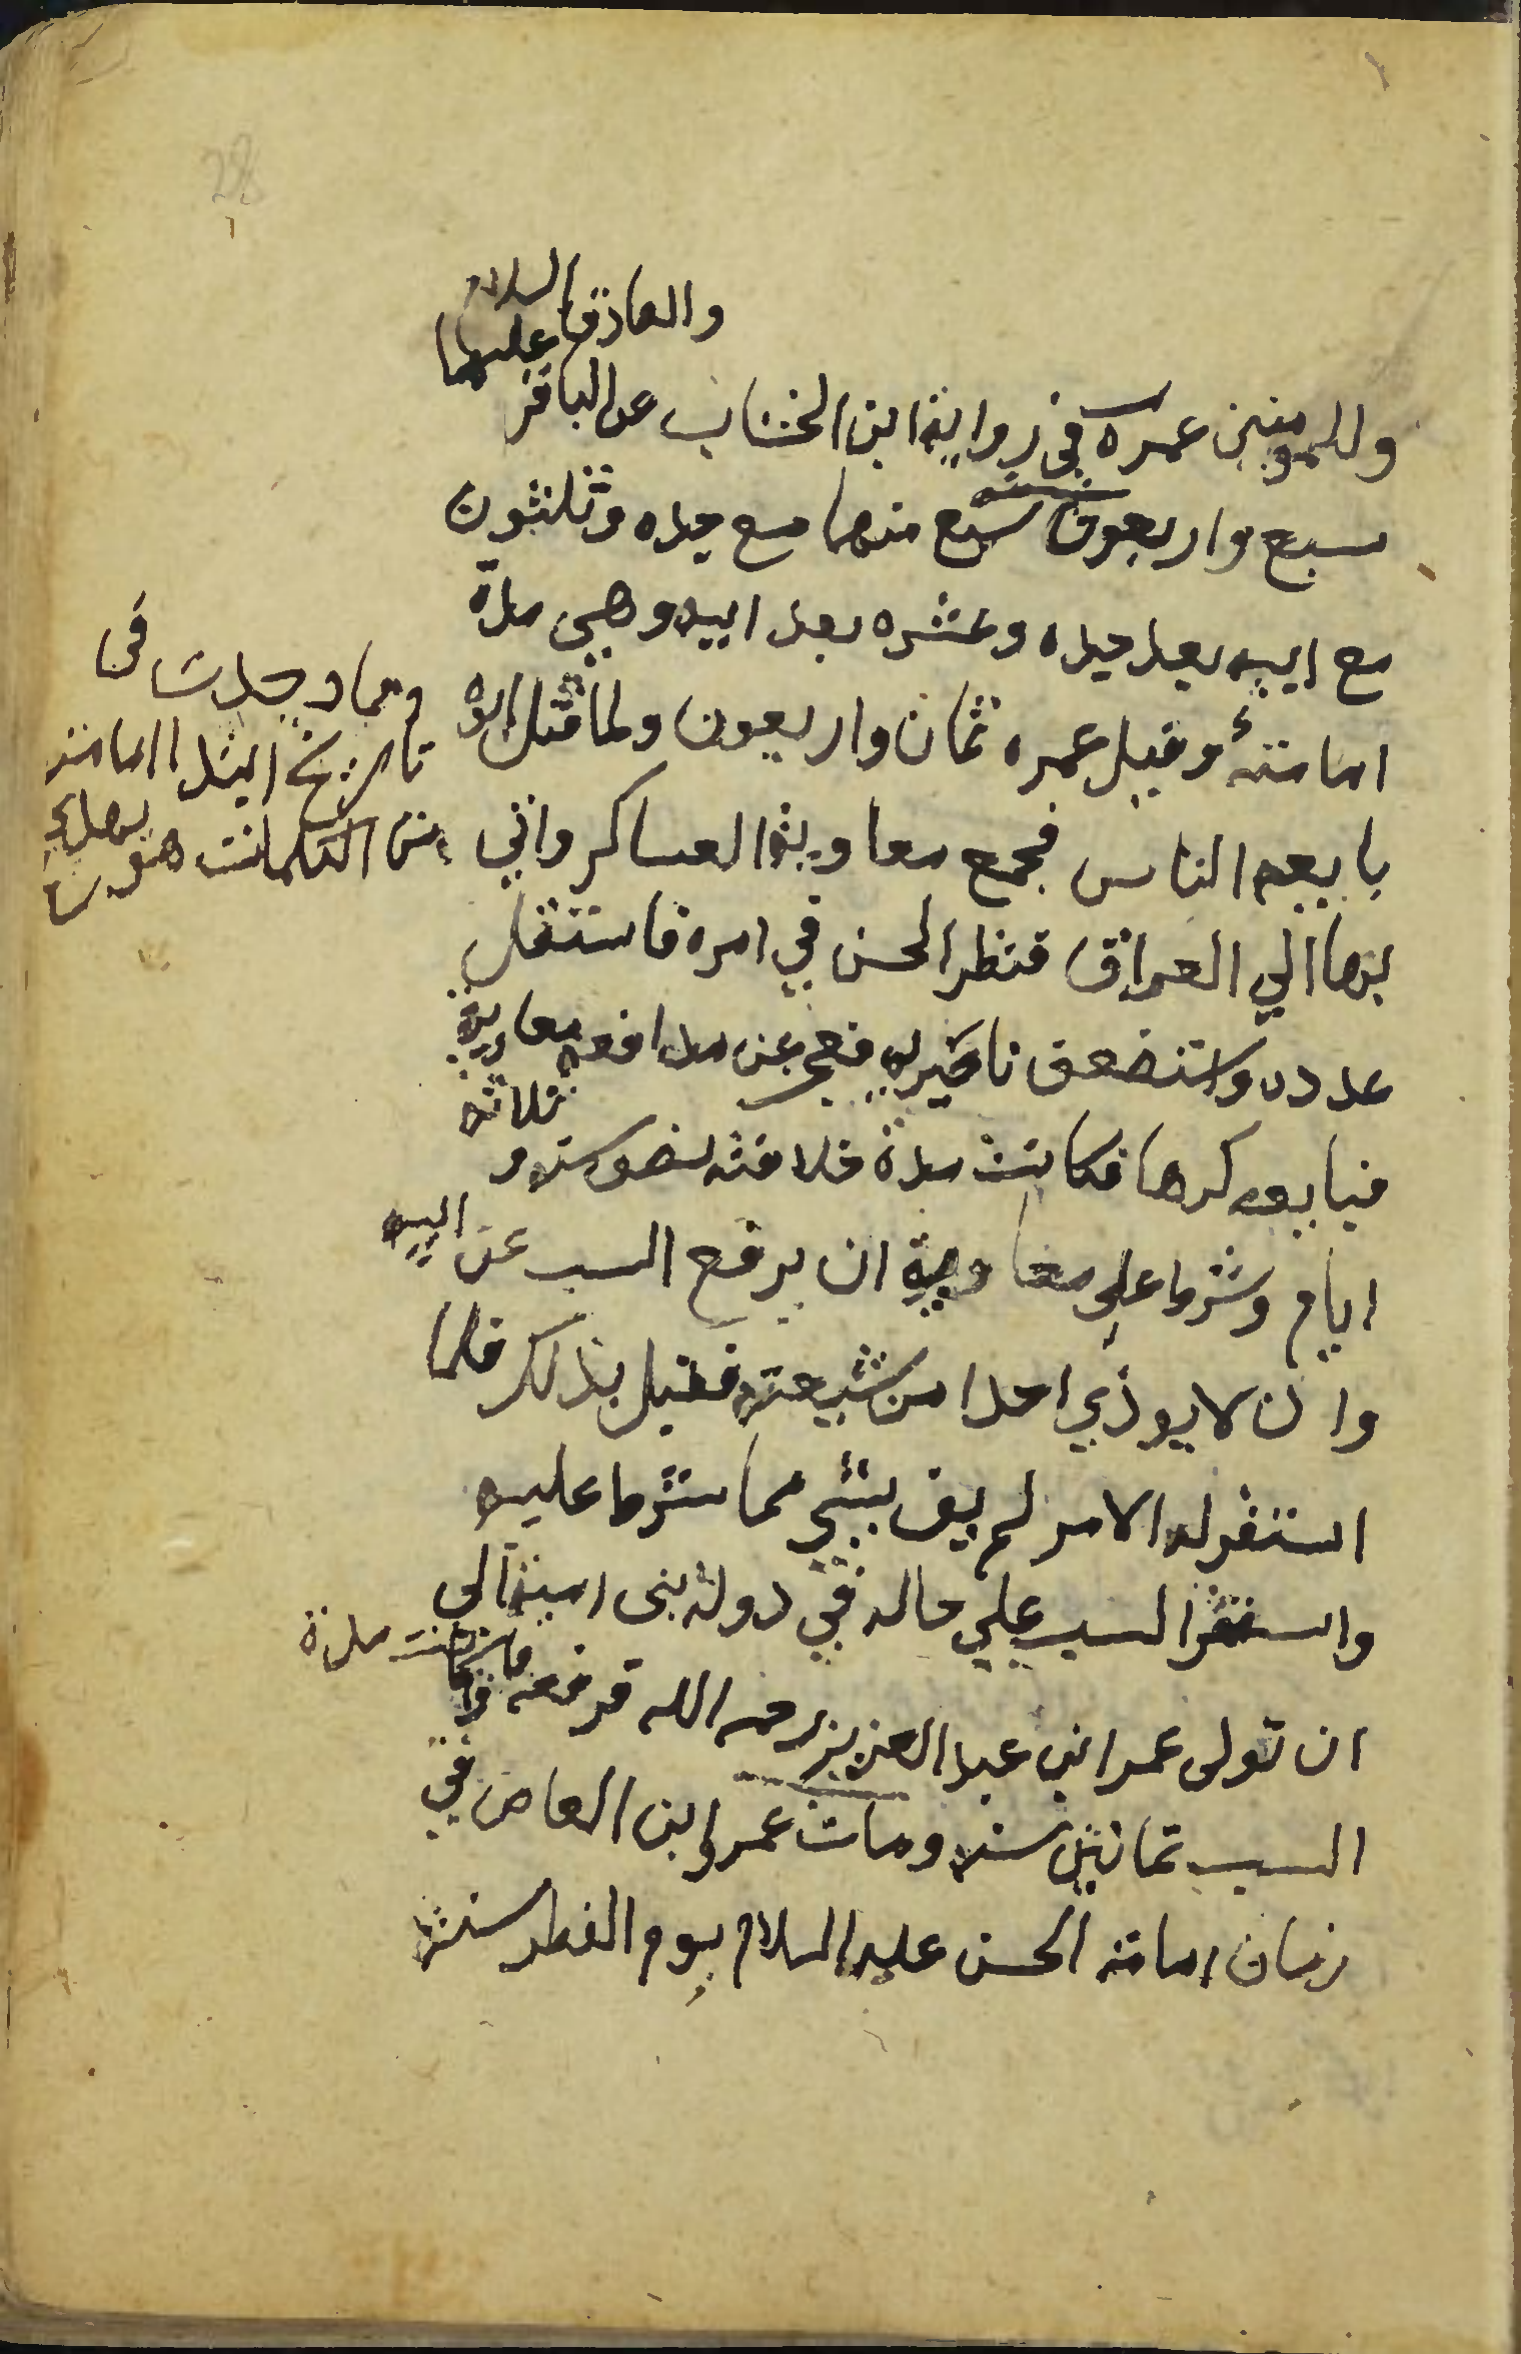 والصادق عليهما السلام
وللمومنين عمره في رواية ابن الخشاب عن الباقر
سبع واربعون سبع منها مع جده وثلثون
مع ابيه بعد جده وعشره بعد ابيه وهي مدة
امامته وقيل عمره ثمان واربعون ولما قتل ابوه
بايعه الناس فجمع معاوية العساكر واتي
بها الي العراق فنظر الحسن في امره فاستقل
عدده واستضعف ناصريه فعجز عن مدافعة معاوية
فبايعه كرها فكانت مدة خلافته نصف سنه و ثلاثه
ايام وشرط علي معاوية ان يرفع السب عن ابيه
وان لا يوذي احدا من شيعته فقبل بذلك فلما
استقر له الامر لم يف بشي مما شرط عليه
واستقر السب علي حاله في دولة بني امية الي
ان تولى عمر ابن عبد العزيز رحمه الله فرفعه فكانت مدة
السب ثمانين سنه ومات عمرو ابن العاص في
زمان امامته الحسن عليه السلام يوم الفطر سنة
ومما وجدت في
تاريخ ابتدا امامته
من الكلمات هو
28